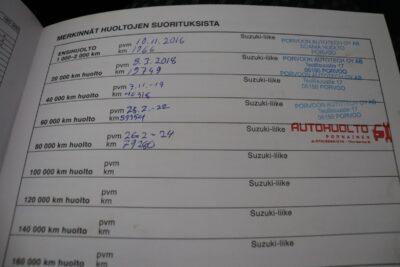 MERKINNÄT HUOLTOJEN SUORITUKSISTA
ENSIHUOLTO pvm 10.11.2016 Suzuki-liike PORVOON AUTOTECH OY AB
1 000-2 000 km km 1966 SCANIA HUOLTO
Teollisuustie 17
06150 PORVOO
pvm 8.3.2018 Suzuki-liike PORVOON AUTOTECH OY AB
20 000 km huolto km 19749 Teollisuustie 17
06150 PORVOO
pvm 7.11.-19 Suzuki-liike PORVOON AUTOTECH OY AB
40 000 km huolto km Teollisuustie 17
06150 PORVOO
pvm 28.2.-22 Suzuki-liike PORVOON AUTOTECH OY AB
60 000 km huolto km Teollisuustie 17
06150 PORVOO
pvm 26.2-24 Suzuki-liike AUTOHUOLTO
80 000 km huolto km 79260 PORNAINEN
pvm Suzuki-liike
100 000 km huolto km
pvm Suzuki-liike
120 000 km huolto km
pvm Suzuki-liike
140 000 km huolto km
pvm Suzuki-liike
160 000 km huolto km